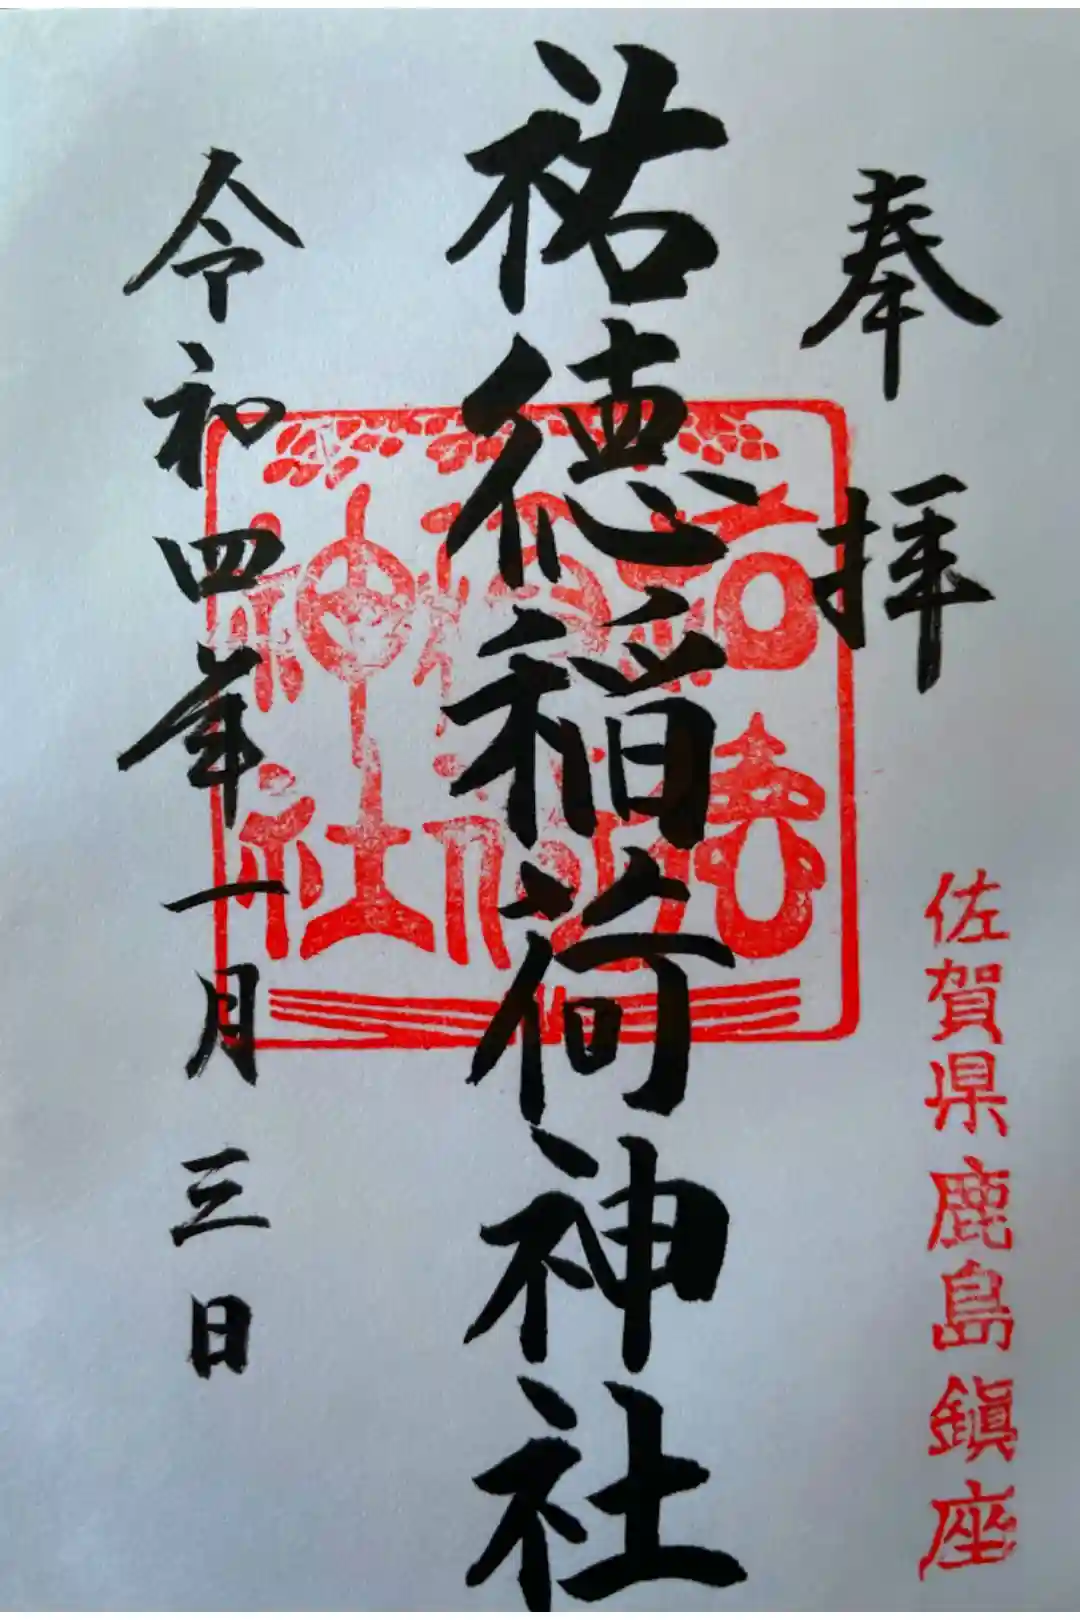 奉拝
佐賀県鹿島鎮座
祐徳稲荷神社
祐徳
稲荷
神社
令和四年一月三日